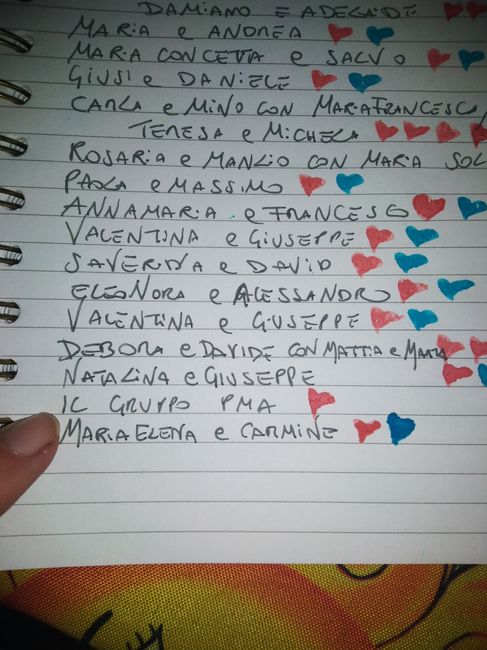 DAMIANO E ADELAIDE
MARIA e ANDREA
MARIA CONCETTA e SALVO
GIUSI e DANIELE
CARLA e MINO CON MARIAFRANCESCA,
TERESA e MICHELA
ROSARIA e MANLIO CON MARIA SOL
PAOLA e MASSIMO
ANNAMARIA e FRANCESCO
VALENTINA e GIUSEPPE
SAVERINA e DAVID
ELEONORA e ALESSANDRO
VALENTINA e GIUSEPPE
DEBORA e DAVIDE CON MATTIA e MARIA
NATALINA e GIUSEPPE
IL GRUPPO PMA
MARIA ELENA e CARMINE